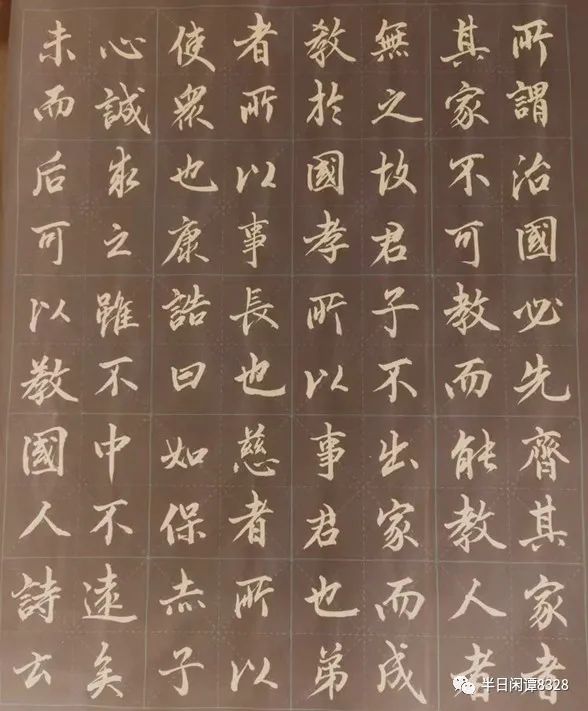 所謂治國必先齊其家者
其家不可教而能教人者
無之故君子不出家而成
教於國孝所以事君也弟
者所以事長也慈者所以
使衆也康誥曰如保赤子
心誠求之雖不中不遠矣
未而后可以教國人詩云
半日闲潭8328